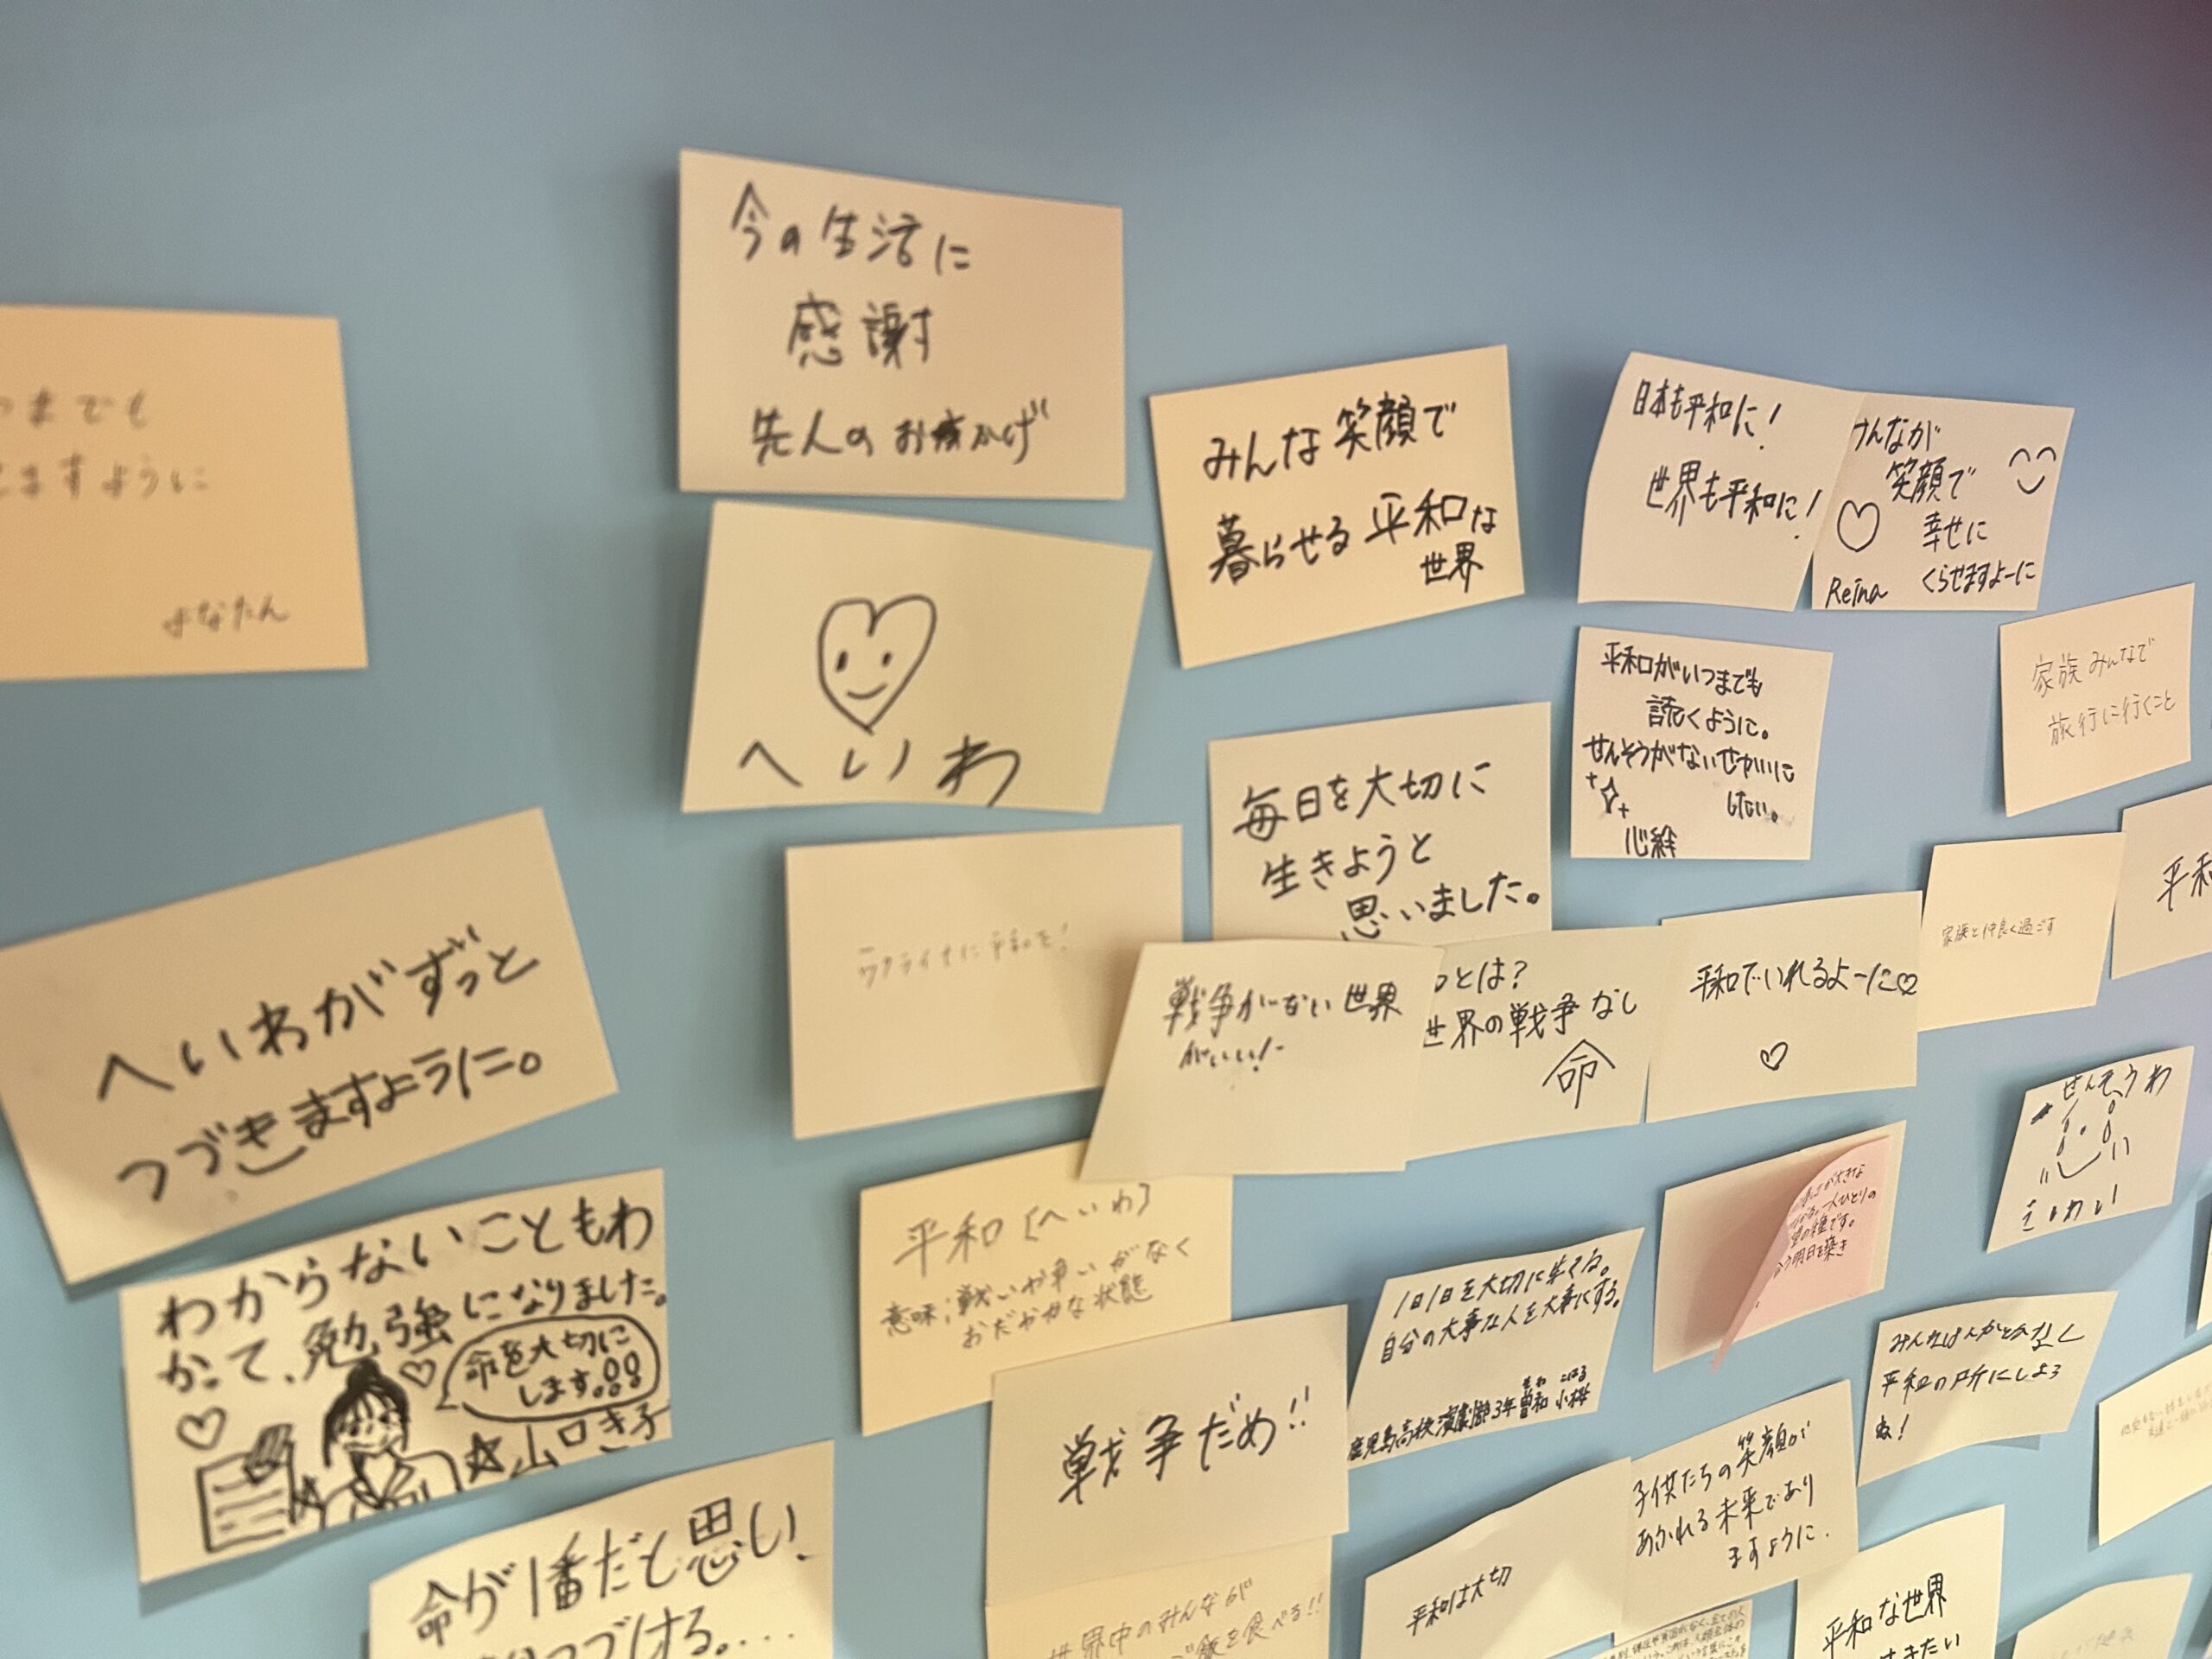 つまでも
ますように
今の生活に
感謝
先人のおかげ
へいわ
みんな笑顔で
暮らせる平和な
世界
日本も平和に!
世界も平和に!
んなが
笑顔で
幸せに
くらせますよーに
Reina
平和がいつまでも
読くように。
せんそうがないせかいに
したい。
心絆
家族みんなで
旅行に行くこと
毎日を大切に
生きようと
思いました。
へいわがずっと
つづきますように。
ウクライナに平和を!
戦争がない世界
がいい!
とは?
世界の戦争なし
命
平和でいれるよーに♡
家族と仲良く過ごす
平和
せんそうわ
きらい
わからないこともわ
かって、勉強になりました。
命を大切に
します!!!
平和〔へいわ〕
意味;戦いや争いがなく
おだやかな状態
戦争だめ!!
1日1日を大切に生きる。
自分の大事な人を大事にする。
鹿児島高校演劇部3年
が大きな
一人ひとりの
です。
明日を築き
平和の所にしよう
ね!
命が1番だと思い
つづける。...
世界中のみんなが
ご飯を食べる!!
平和は大切
子供たちの笑顔が
あふれる未来であり
ますように.
平和な世界
きたい